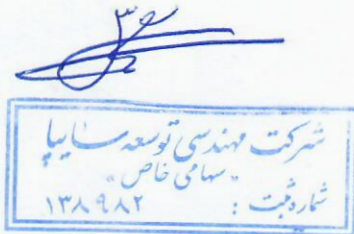 شرکت مهندسی توسعه سایپا
"سهامی خاص"
شماره ثبت : ۱۳۸۹۸۲